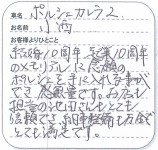 車名 ポルシェカレラ2
お名前 小酒
お客様よりひとこと
結婚10周年、起業10周年
のメモリアルに念願の
ポルシェを手に入れる事が
でき感無量です。お店も
担当の池田さんもとても
信頼でき、納車整備も万全で
とても満足です。